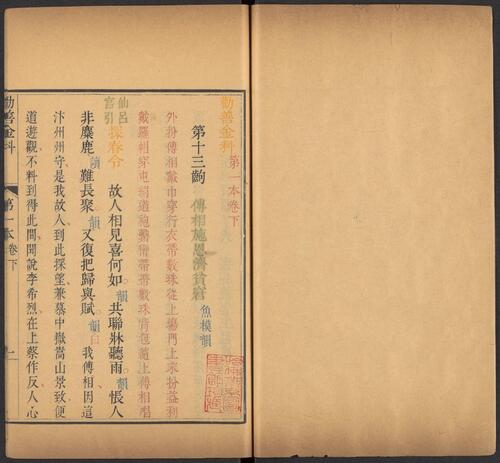 勸善金科
第一本卷下
第十三齣 傅相施恩濟貧窘 魚模韻
外扮傅相戴巾穿行衣帶數珠從上場門上末扮益利
戴羅帽穿屯絹道袍繫帶帶數珠背包隨上傅相唱
仙呂宮引 探春令 故人相見喜何如韻共聯牀聽雨韻悵人
非麋鹿讀難長聚韻又復把歸與賦韻白我傅相因這
汴州州守是我故人到此探望兼慕中嶽嵩山景致便
道遊觀不料到得此間聞說李希烈在上蔡作反人心
勸善金科 第一本卷下 一